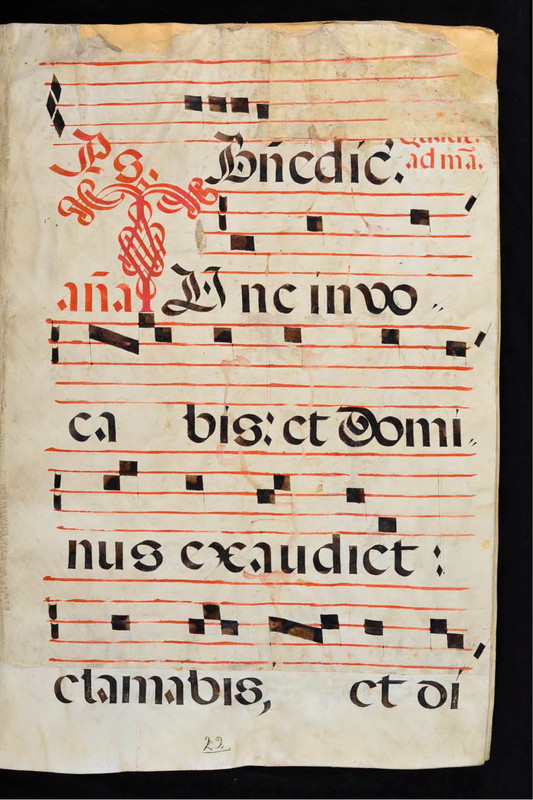 Ps. Bñedic̃.
ad mã.
aña Tunc invo
ca bis: et Domi
nus exaudiet:
clamabis, et di
22